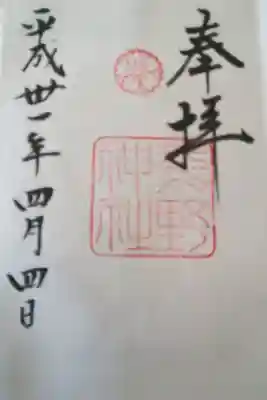 奉拝
神社
平成卅一年四月四日